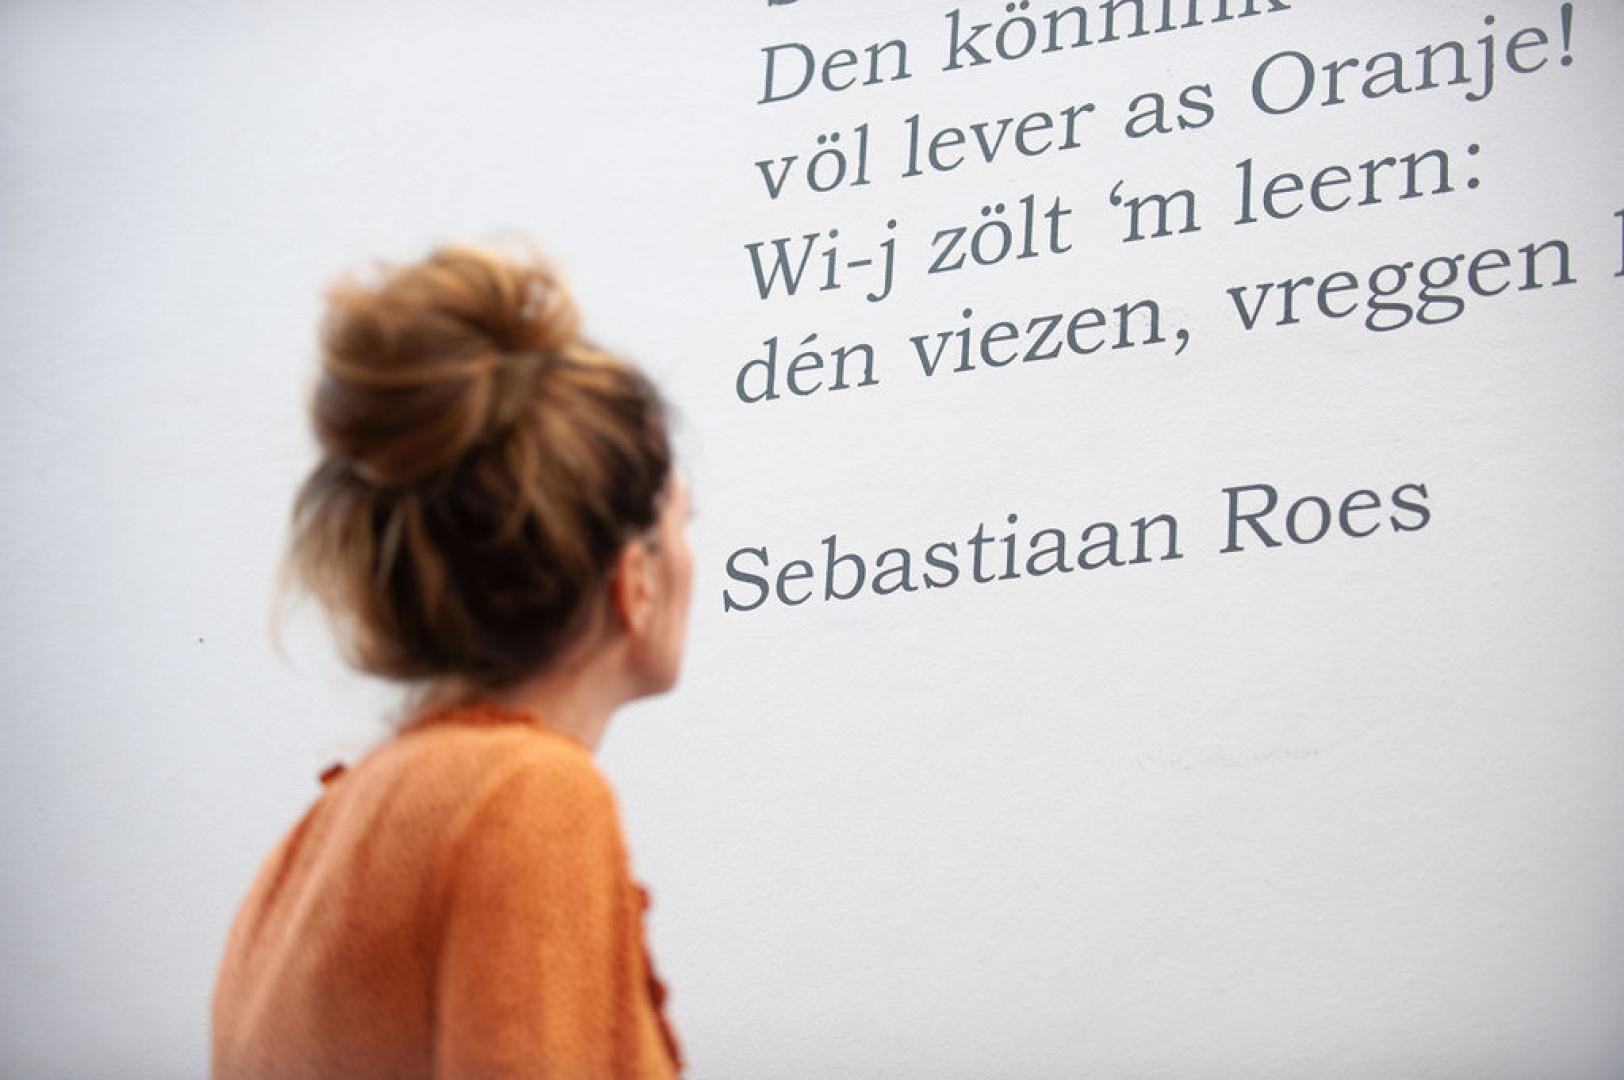 Den könnink
völ lever as Oranje!
Wi-j zölt ‘m leern:
dén viezen, vreggen
Sebastiaan Roes